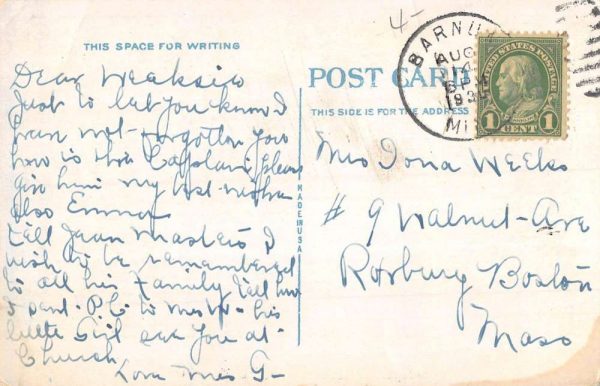 4-
THIS SPACE FOR WRITING
Dear Weaksie
Just to let you know I
have not forgotten you
how is the Please
give him my best wishes
also Emma
Tell Jean Masters I
wish to be remembered
to all his Family tell him
I sent P.C. to Mrs W- his
little Girl ask you at
Church
Love Mrs G-
MADE IN USA
POST CARD
THIS SIDE IS FOR THE ADDRESS
BARNU
AUG
4
193
MI
UNITED STATES POSTAGE
FRANKLIN
1 CENT 1
Mrs Iona Weeks
# 9 Walnut-Ave
Roxbury Boston
Mass